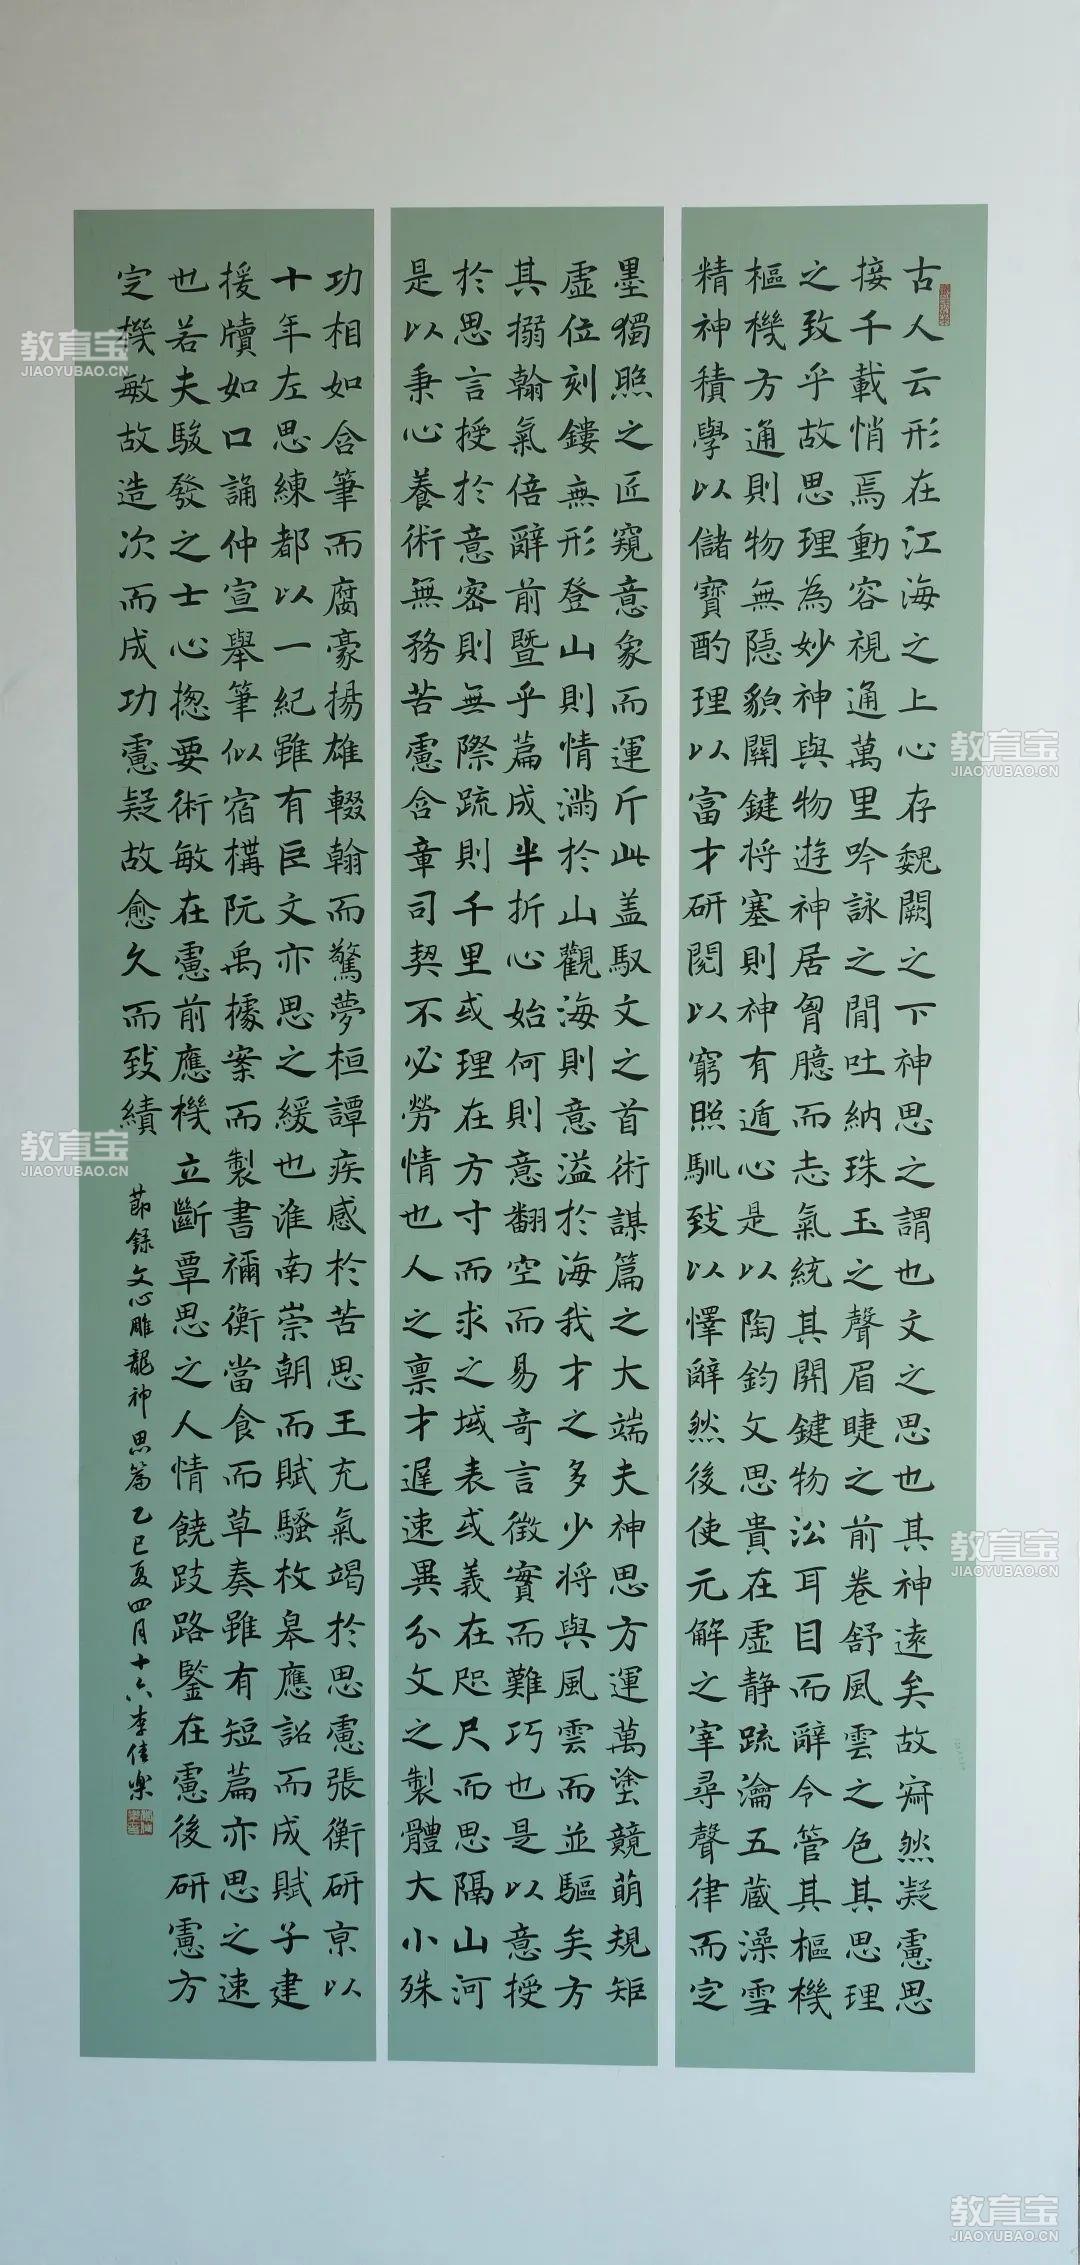 古人云形在江海之上心存魏闕之下神思之謂也文之思也其神遠矣故寂然凝慮思
接千載悄焉動容視通萬里吟詠之間吐納珠玉之聲眉睫之前卷舒風雲之色其思理
之致乎故思理為妙神與物遊神居胷臆而志氣統其關鍵物沿耳目而辭令管其樞機
樞機方通則物無隱貌關鍵将塞則神有遁心是以陶鈞文思貴在虛静疏瀹五藏澡雪
精神積學以儲寶酌理以富才研閱以窮照馴致以懌辭然後使元解之宰尋聲律而定
墨獨照之匠窺意象而運斤此盖馭文之首術謀篇之大端夫神思方運萬塗競萌規矩
虛位刻鏤無形登山則情滿於山觀海則意溢於海我才之多少将與風雲而並驅矣方
其搦翰氣倍辭前暨乎篇成半折心始何則意翻空而易奇言徵實而難巧也是以意授
於思言授於意密則無際疏則千里或理在方寸而求之域表或義在咫尺而思隔山河
是以秉心養術無務苦慮含章司契不必勞情也人之禀才遲速異分文之製體大小殊
功相如含筆而腐豪揚雄輟翰而驚夢桓譚疾感於苦思王充氣竭於思慮張衡研京以
十年左思練都以一紀雖有巨文亦思之緩也淮南崇朝而賦騷枚皋應詔而成賦子建
援牘如口誦仲宣舉筆似宿構阮禹據案而製書禰衡當食而草奏雖有短篇亦思之速
也若夫駿發之士心揔要術敏在慮前應機立斷覃思之人情饒歧路鑒在慮後研慮方
定機敏故造次而成功慮疑故愈久而致績
節錄文心雕龍神思篇乙巳夏四月十六李佳樂
教育宝
JIAOYUBAO.CN
教育宝
JIAOYUBAO.CN
教育宝
JIAOYUBAO.CN
教育宝
JIAOYUBAO.CN
教育宝
JIAOYUBAO.CN